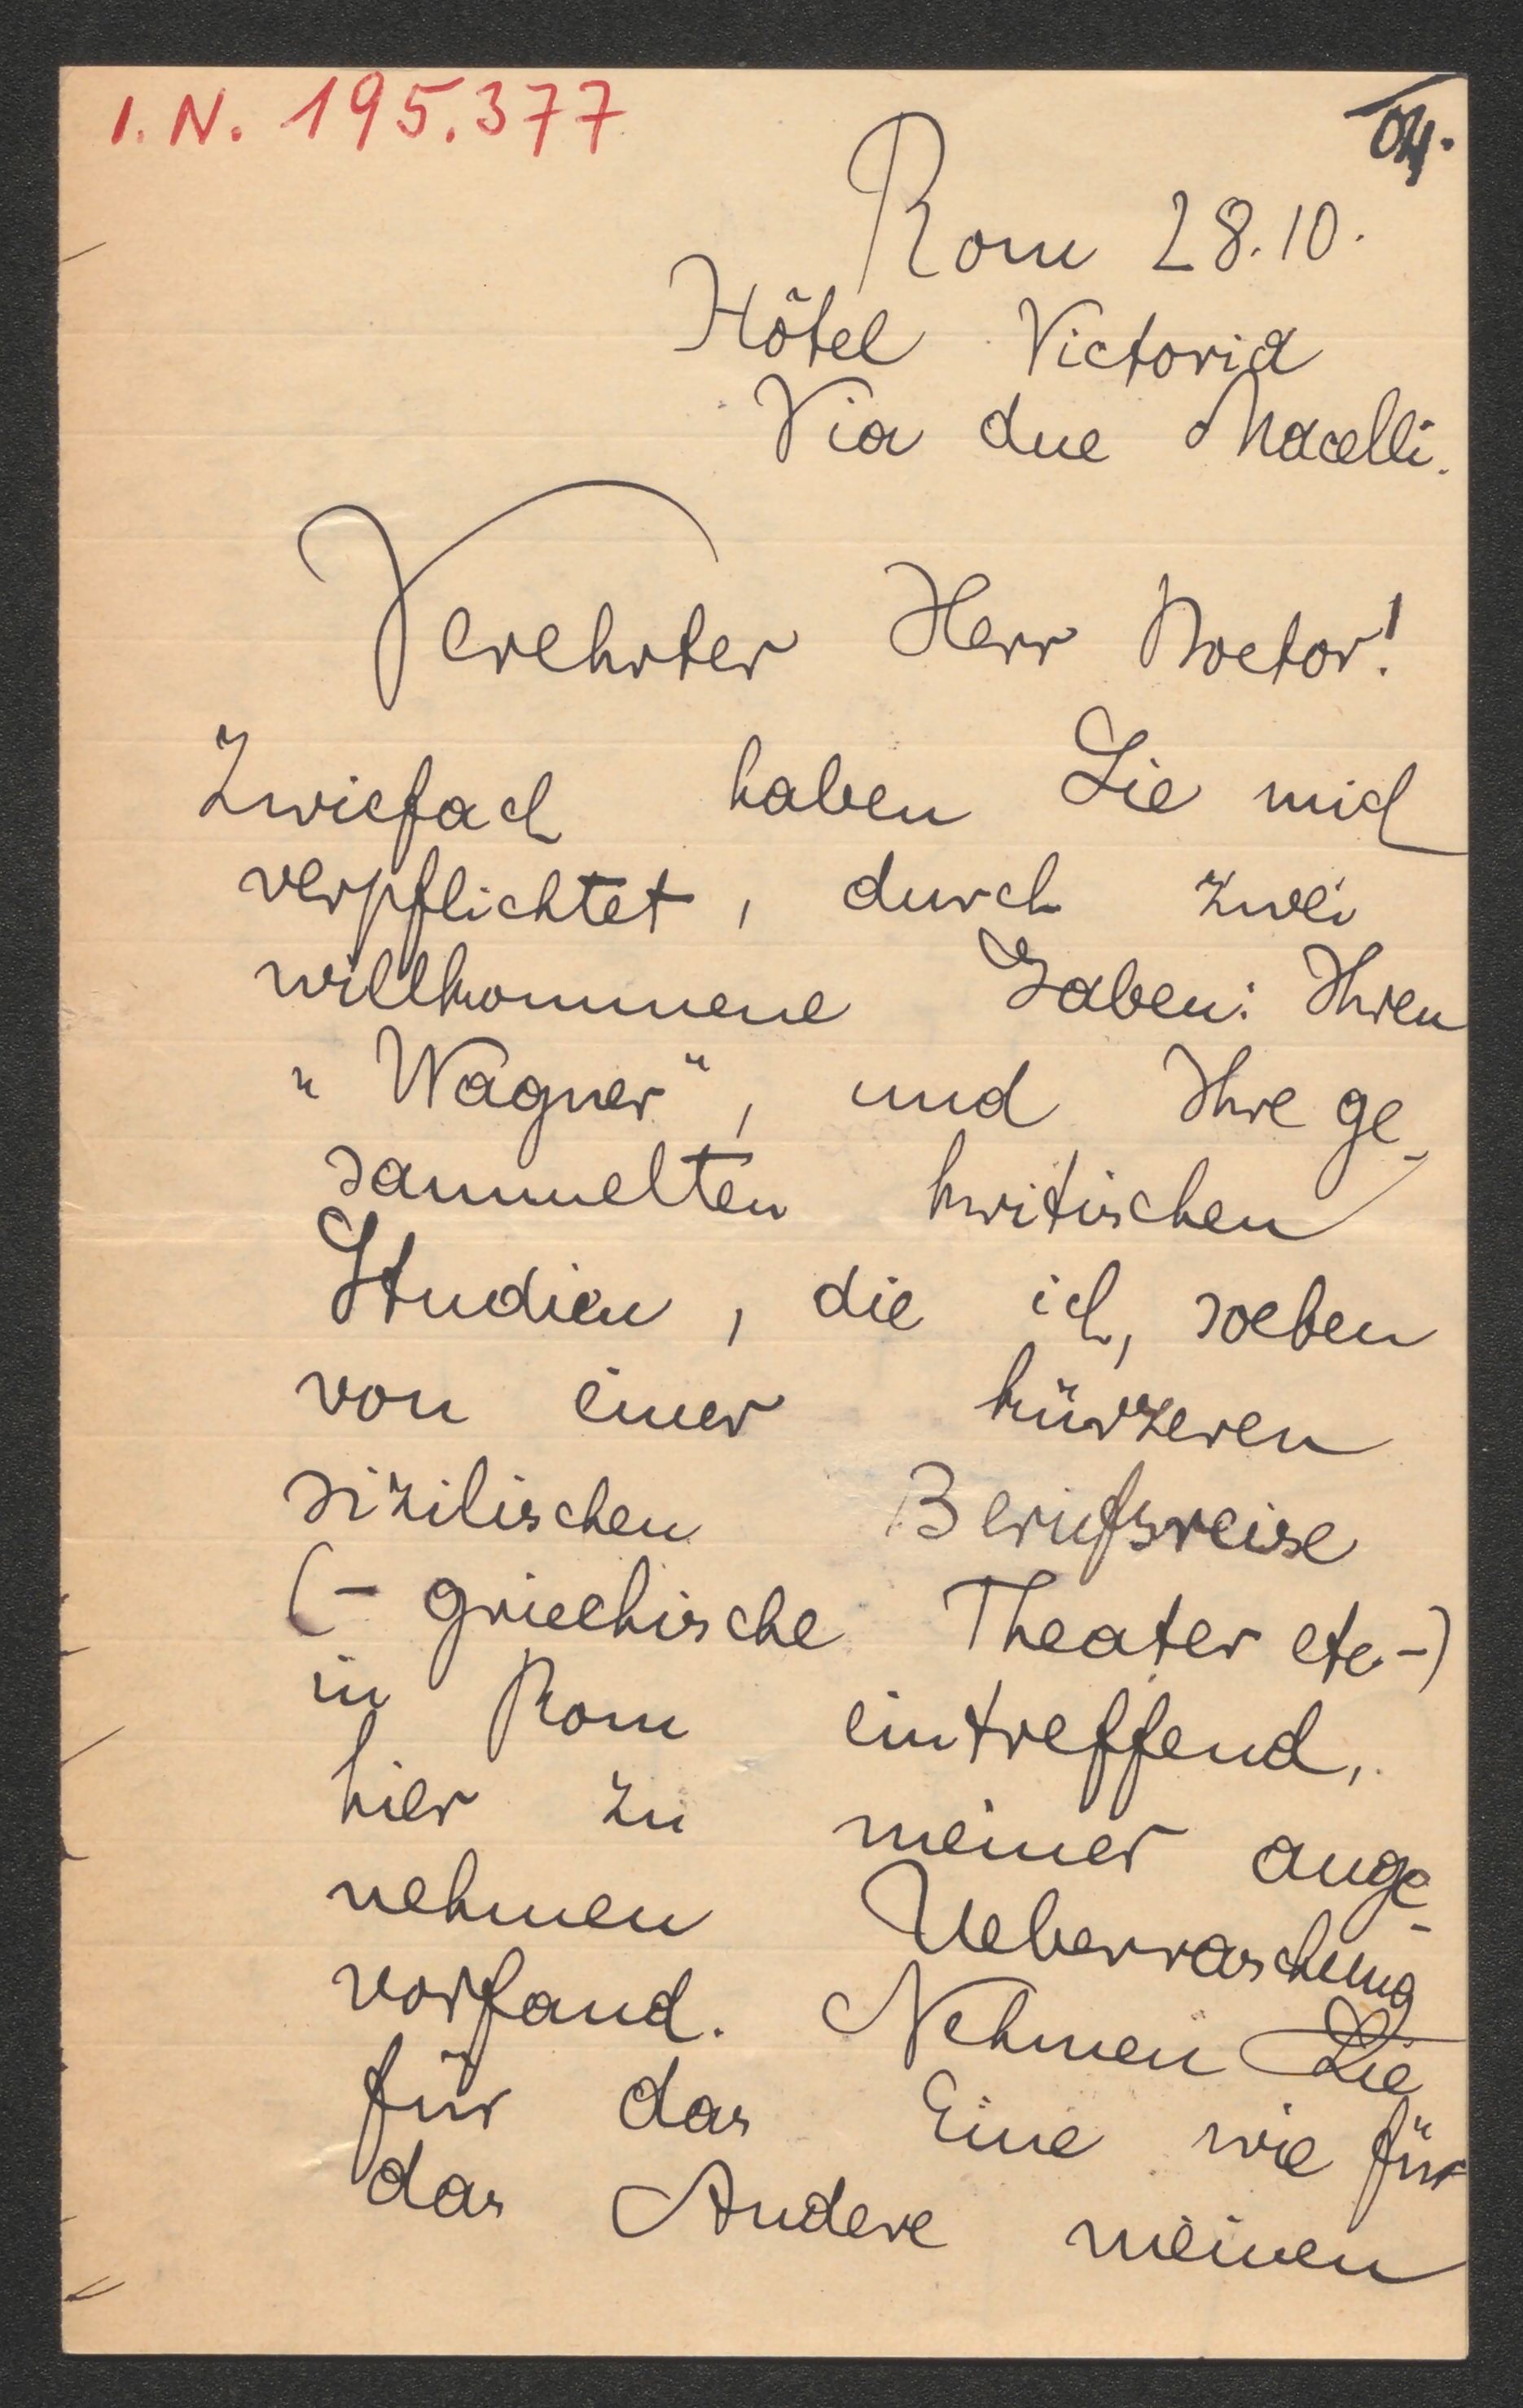 I.N. 195.377
04.
Rom 28.10.
Hôtel Victoria
Via due Macelli.
Verehrter Herr Doctor!
Zwiefach haben Sie mich
verpflichtet, durch zwei
willkommene Gaben: Ihren
„Wagner“, und Ihre ge-
sammelten kritischen
Studien, die ich, soeben
von einer kürzeren
sizilischen Berufsreise
(- griechische Theater etc -)
in Rom eintreffend,
hier zu meiner ange-
nehmen Ueberraschung
vorfand. Nehmen Sie
für das Eine wie für
das Andere meinen